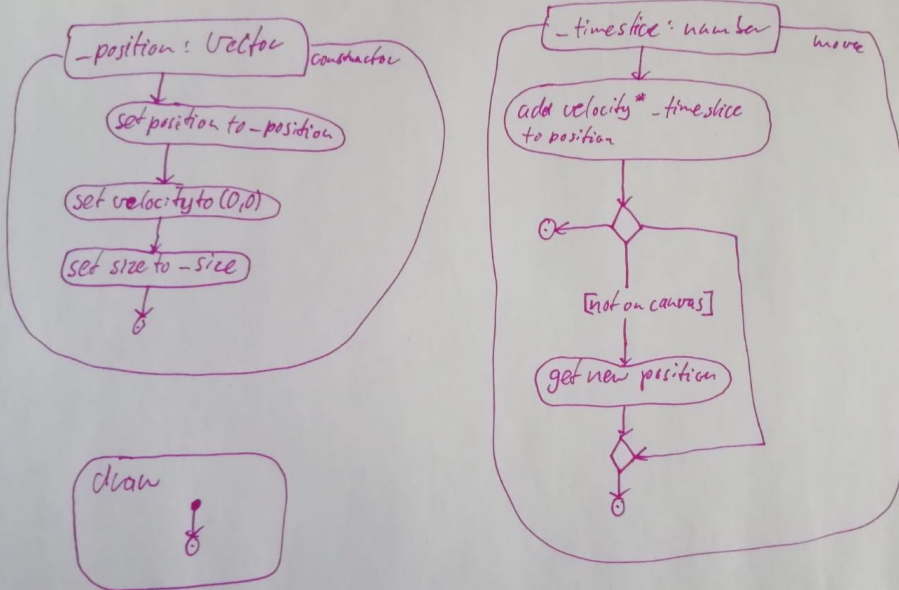 _position: Vector
constructor
set position to _position
set velocity to (0,0)
set size to _size
_timeslice: number
move
add velocity* _timeslice
to position
[not on canvas]
get new position
draw